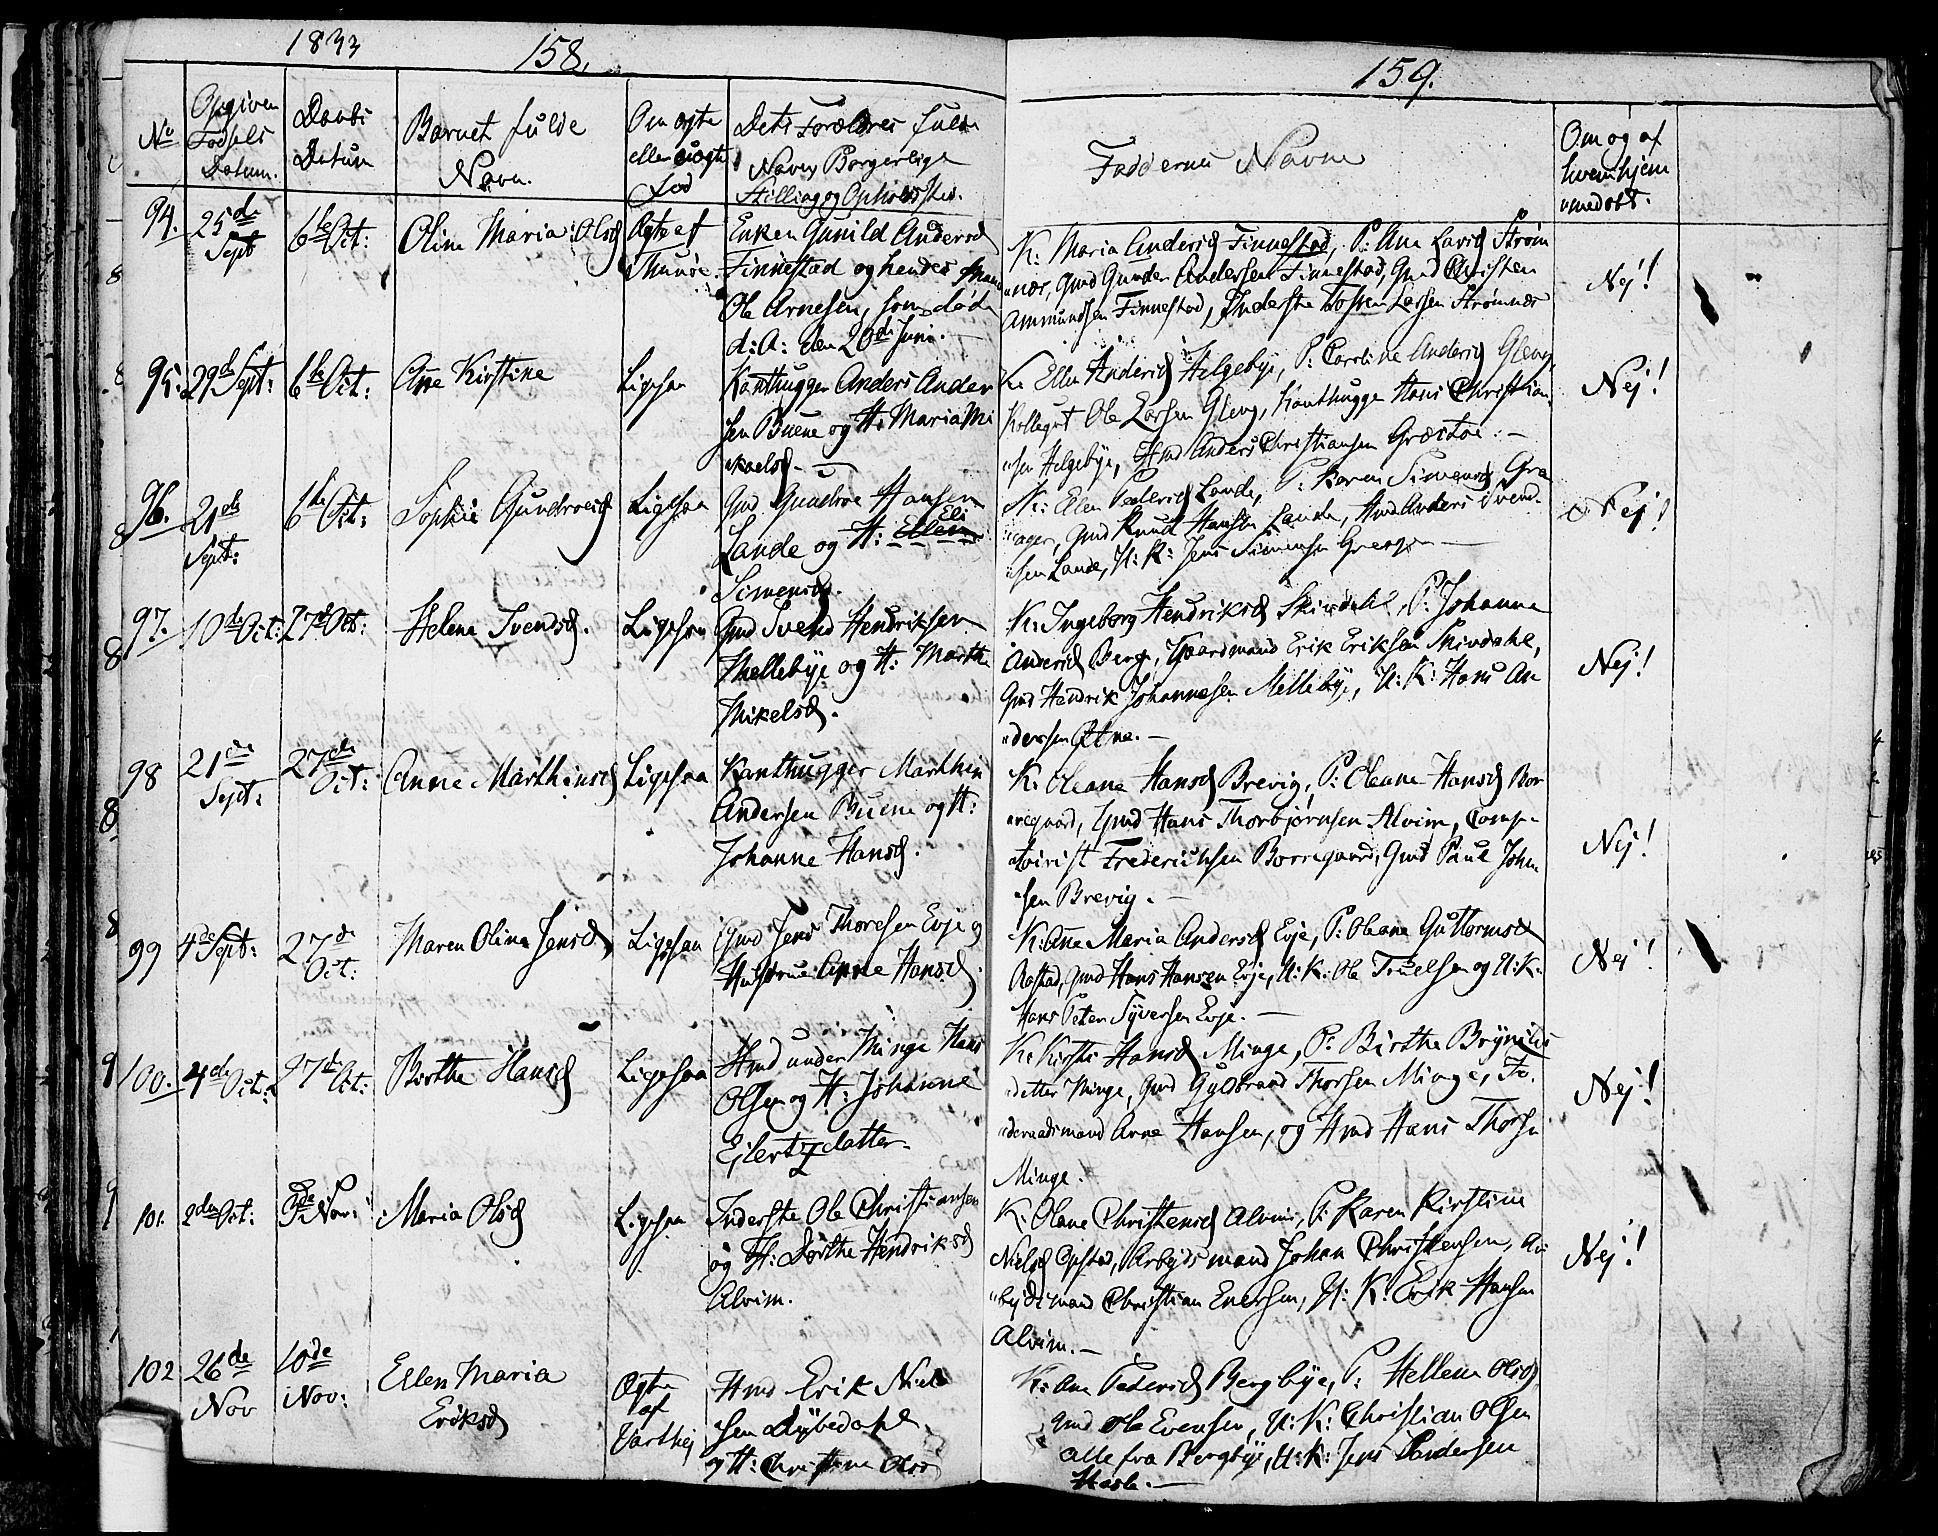 1833
158.
159.
No
Opgiven Fødsels Datum.
Daabs Datum
Barnet fulde Navn.
Om ægte eller uægte fød
Dets Forældres fulde Navn, Borgerlige Stilling og Opholdsted.
Faddernes Navne
Om og af hvem hjemmedøbt.
94. 25de Sept 6te Oct: Oline Maria Olsd Ægte af
Enken Gunild Andersd
Finnestad og hendes Mand
Ole Arnesen, som døde
d: A: den 20de Juni.
K: Maria Andersd Finnestad, P: Ane Larsd Strøm
næs, Gmd Gunder Andersen Finnestad, Gmd Christen
Ammundsen Finnestad, Inderste Larsen Strømnæs
Nej!
95. 29de Sept: 6te Oct: Ane Kirstine Ligesaa
Kanthugger Anders Ander
sen Buene og H: Maria Mi
kaelsd.
K: Ellen Andersd Helgebye, P: Caroline Andersd Gleng,
Ole Larsen Gleng, Kanthugger Hans Christian
sen Helgebye, Hmd Anders Christiansen
Nej!
96. 21de Sept: 6te Oct: Sophie Gundroesd Ligesaa
Gmd Gundroe Hansen
Lande og H: Ellen Eli
Simensd.
K: Ellen Pedersd Lande, P: Karen Simensd Gre
aager, Gmd Knud Hansen Lande, Hmd Anders Svend
sen Lande, U: K: Jens Simensen
Nej!
97. 10de Oct: 27de Oct: Helene Svendsd. Ligesaa
Gmd Svend Hendriksen
Mellebye og H: Marthe
Mikelsd.
K: Ingeborg Hendriksd Skivdahl, P: Johanne
Andersd Berg, Gaardmand Erik Eriksen Skivdahl,
Gmd Hendrik Johannesen Mellebye, U: K: Hans An
dersen
Nej!
98 21de Sept: 27de Oct: Anne Marthinsd Ligesaa
Kanthugger Marthin
Andersen Buene og H:
Johanne Hansd.
K: Oleane Hansd Brevig, P: Oleane Hansd Bor
regaard, Gmd Hans Thorbjørnsen Alvim, Comp
toirist Frederichsen Borregaard, Gmd Paul John
sen Brevig.
Nej!
99 4de Sept: 27de Oct: Maren Oline Jensd Ligesaa
Gmd Jens Thoresen Evje og
Hustrue Anne Hansd.
K: Ane Maria Andersd Evje, P: Oleane Guttormsd
Gmd Hans Hansen Evje, U: K: Ole Truelsen og U: K:
Hans Peter Syversen Evje.
Nej!
100. 4de Oct: 27de Oct: Birthe Hansd Ligesaa
Hmd under Minge Hans
Olsen og H: Johanne
Eilertsdatter
K: Kirsti Hansd Minge, P: Birthe Brynilds
detter Minge, Gmd Gulbrand Thorsen Minge, Fo
deraadsmand Arne Hansen, og Hmd Hans Thorsen
Minge.
Nej!
101. 2den Oct: 3de Nov: Maria Olsd Ligesaa
Inderste Ole Christiansen
og H: Dorthe Hendriksd
Alvim.
K: Olane Christensd Alvim, P: Karen Kirstine
Nielsd Opstad, Arbeidsmand Johan Christensen, Ar
beidsmand Christian Enersen, U: K: Erik Hansen
Alvim.
Nej!
102 26de Nov 10de Nov: Ellen Maria Eriksd Ægte af Varthej
Hmd Erik Niel
sen Dybedahl
og H: Christine Olsd
K: Ane Pedersd Bergbye, P: Hellene Olsd,
Gmd Ole Evensen, U: K: Christian Olsen
alle fra Bergbye, U: K: Jens Andersen
Hasle.